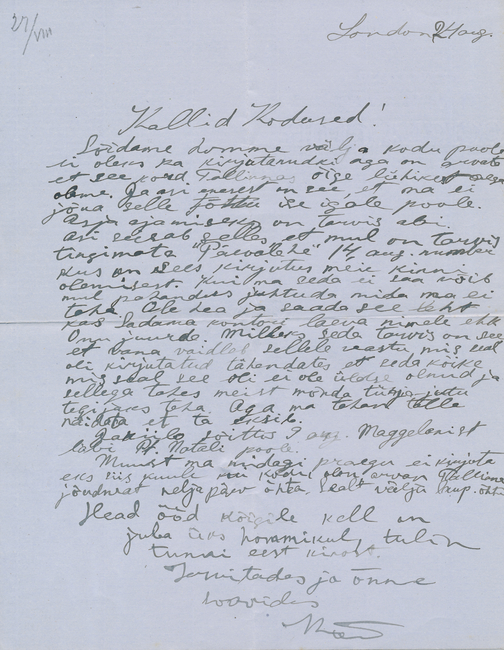 27/VIII
London 24 aug.
Kallid Kodused!
Sõidame homme välja kodu poole
ei oleks ka kirjutanudki aga on
et see kord Tallinnas õige lühikest aega
oleme. Ja asi enesest on see et ma ei
jõua selle tõttu ise igale poole.
Asja ajamiseks on tarvis abi.
Asi seisab selles, et mul on tarvis
tingimata "Päevaleht" 14 aug. number
kus on sees kirjutus meie kinni
olemisest. Kui ma seda ei saa võib
mul pahandus juhtuda mida ma ei
taha. Ole hea ja saada see leht
kas Sadama kontori laeva nimele ehk
Onu juurde. Milleks seda tarvis on see
et vana vaidleb sellele vastu mis seal
oli kirjutatud tähendates et seda kõike
mis seal see oli ei ole üldse olnud ja
sellega tahes meist mõnda tühja jutu
tegijaks teha. Aga ma tahan talle
näidata et ta eksib.
sõitis 9 aug. Maggelonist
läbi P. Natali poole.
Muust ma midagi praegu ei kirjuta
eks siis kuule kui kodu olen arvan Tallinna
jõudvat neljapäev õhta sealt välja laup. õht.
Head ööd kõigile kell on
juba üks hommikul, tulin
tunni eest kinost.
Tervitades ja õnne
soovides